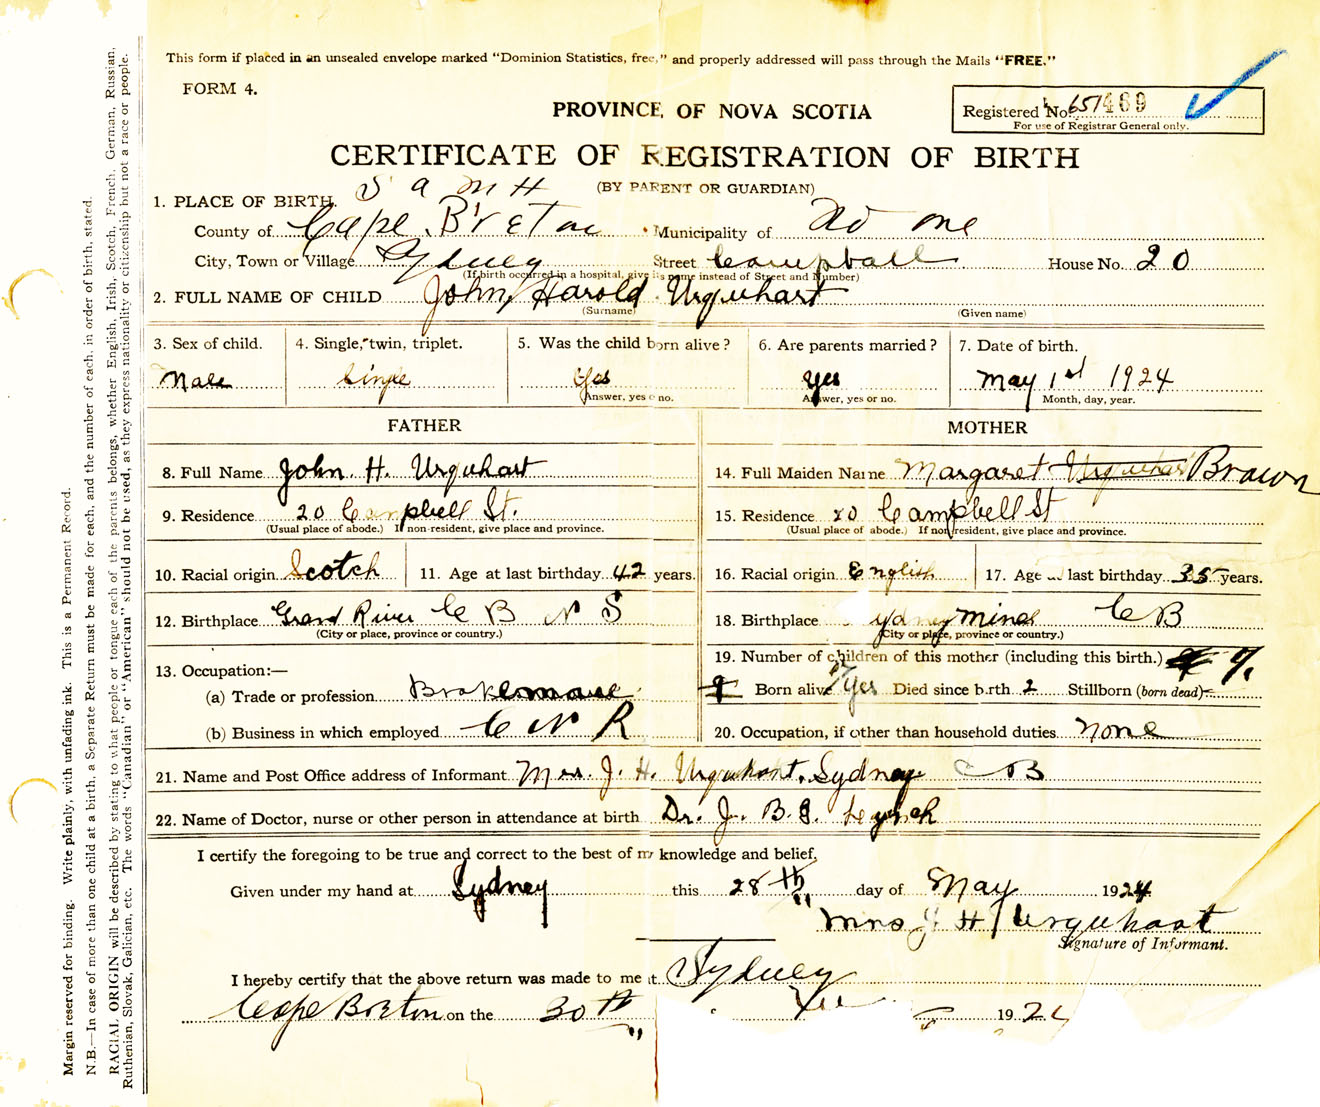 This form if placed in an unsealed envelope marked "Dominion Statistics, free," and properly addressed will pass through the Mails "FREE."
FORM 4.
PROVINCE OF NOVA SCOTIA
Registered No. 469
For use of Registrar General only.
CERTIFICATE OF REGISTRATION OF BIRTH
(BY PARENT OR GUARDIAN)
1. PLACE OF BIRTH.
County of Cape Breton Municipality of
City, Town or Village Sydney Street Campball House No. 20
(If birth occurred in a hospital, give its name instead of Street and Number)
2. FULL NAME OF CHILD John Harold Urquhart
(Surname) (Given name)
3. Sex of child. 4. Single, twin, triplet. 5. Was the child born alive? 6. Are parents married? 7. Date of birth.
Male Single Yes yes May 1st 1924
Answer, yes or no. Answer, yes or no. Month, day, year.
FATHER MOTHER
8. Full Name John H. Urquhart 14. Full Maiden Name Margaret Urquhart Brown
9. Residence 20 Campbell St. 15. Residence 20 Campbell St
(Usual place of abode.) If non-resident, give place and province. (Usual place of abode.) If non resident, give place and province.
10. Racial origin Scotch 11. Age at last birthday 42 years. 16. Racial origin English 17. Age at last birthday 35 years.
12. Birthplace Grand River C B N S 18. Birthplace Sydney Mines C B
(City or place, province or country.) (City or place, province or country.)
13. Occupation:— 19. Number of children of this mother (including this birth.) 9
(a) Trade or profession Born alive Yes Died since birth 2 Stillborn (born dead)
(b) Business in which employed C N R 20. Occupation, if other than household duties none
21. Name and Post Office address of Informant Mrs. J. H. Urquhart, Sydney C B
22. Name of Doctor, nurse or other person in attendance at birth Dr. J. B.
I certify the foregoing to be true and correct to the best of my knowledge and belief,
Given under my hand at Sydney this 28th day of May 1924
Mrs J H Urquhart
Signature of Informant.
I hereby certify that the above return was made to me at Sydney
Cape Breton on the 30th 192
Margin reserved for binding. Write plainly, with unfading ink. This is a Permanent Record.
N.B.—In case of more than one child at a birth, a Separate Return must be made for each, and the number of each, in order of birth, stated.
RACIAL ORIGIN will be described by stating to what people or tongue each of the parents belongs, whether English, Irish, Scotch, French, German, Russian,
Ruthenian, Slovak, Galician, etc. The words "Canadian" or "American" should not be used, as they express nationality or citizenship but not a race or people.